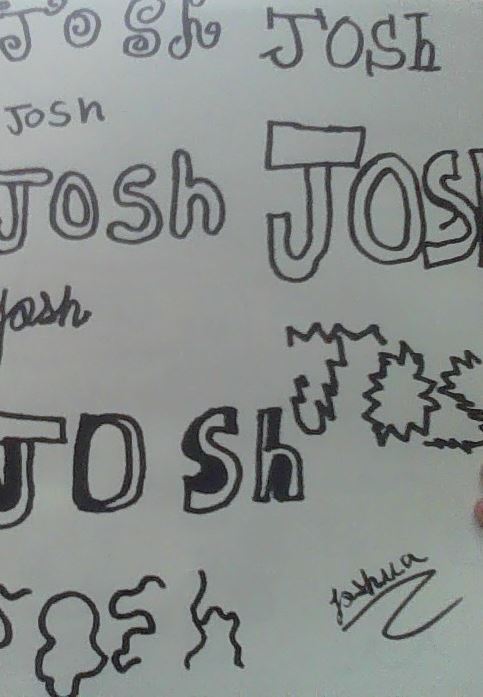 Josh JOSh
Josh
Josh JOS
Josh
JOSh JOS
Josh
Joshua